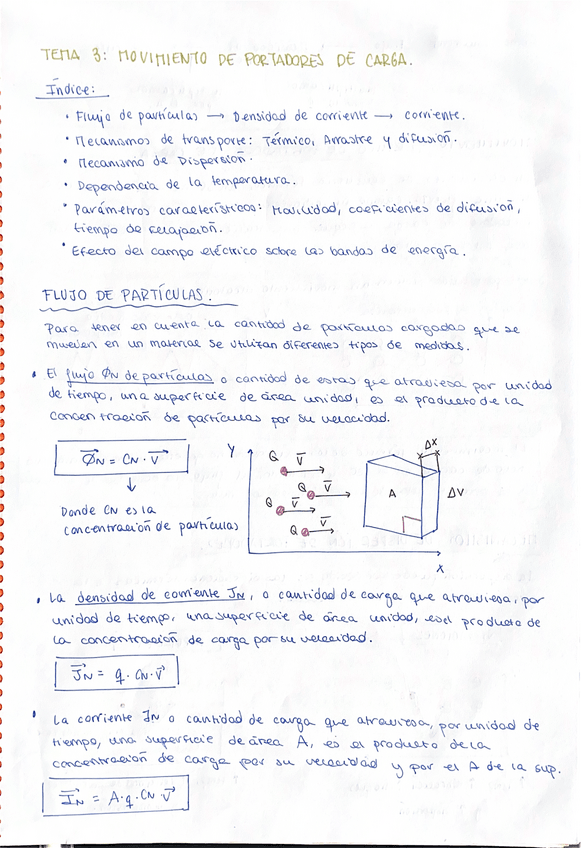 TEMA 3: MOVIMIENTO DE PORTADORES DE CARGA.
Índice:
• Flujo de partículas → Densidad de corriente → corriente.
• Mecanismos de transporte: Térmico, Arrastre y difusión.
• Mecanismo de Dispersión.
• Dependencia de la temperatura.
• Parámetros característicos: Movilidad, coeficientes de difusión,
tiempo de relajación.
• Efecto del campo eléctrico sobre las bandas de energía.
FLUJO DE PARTÍCULAS.
Para tener en cuenta la cantidad de partículas cargadas que se
mueven en un material se utilizan diferentes tipos de medidas.
• El flujo ΦN de partículas o cantidad de estas que atraviesa por unidad
de tiempo, una superficie de área unidad, es el producto de la
concentración de partículas por su velocidad.
Φ⃗N = CN · V⃗
↓
Donde CN es la
concentración de partículas
Y
Q V⃗
Q V⃗
Q V⃗
Q V⃗
X
ΔX
A
ΔV
• La densidad de corriente JN, o cantidad de carga que atraviesa, por
unidad de tiempo, una superficie de área unidad, es el producto de
la concentración de carga por su velocidad.
J⃗N = q · CN · V⃗
• La corriente IN o cantidad de carga que atraviesa, por unidad de
tiempo, una superficie de área A, es el producto de la
concentración de carga por su velocidad y por el A de la sup.
I⃗N = A · q · CN · V⃗